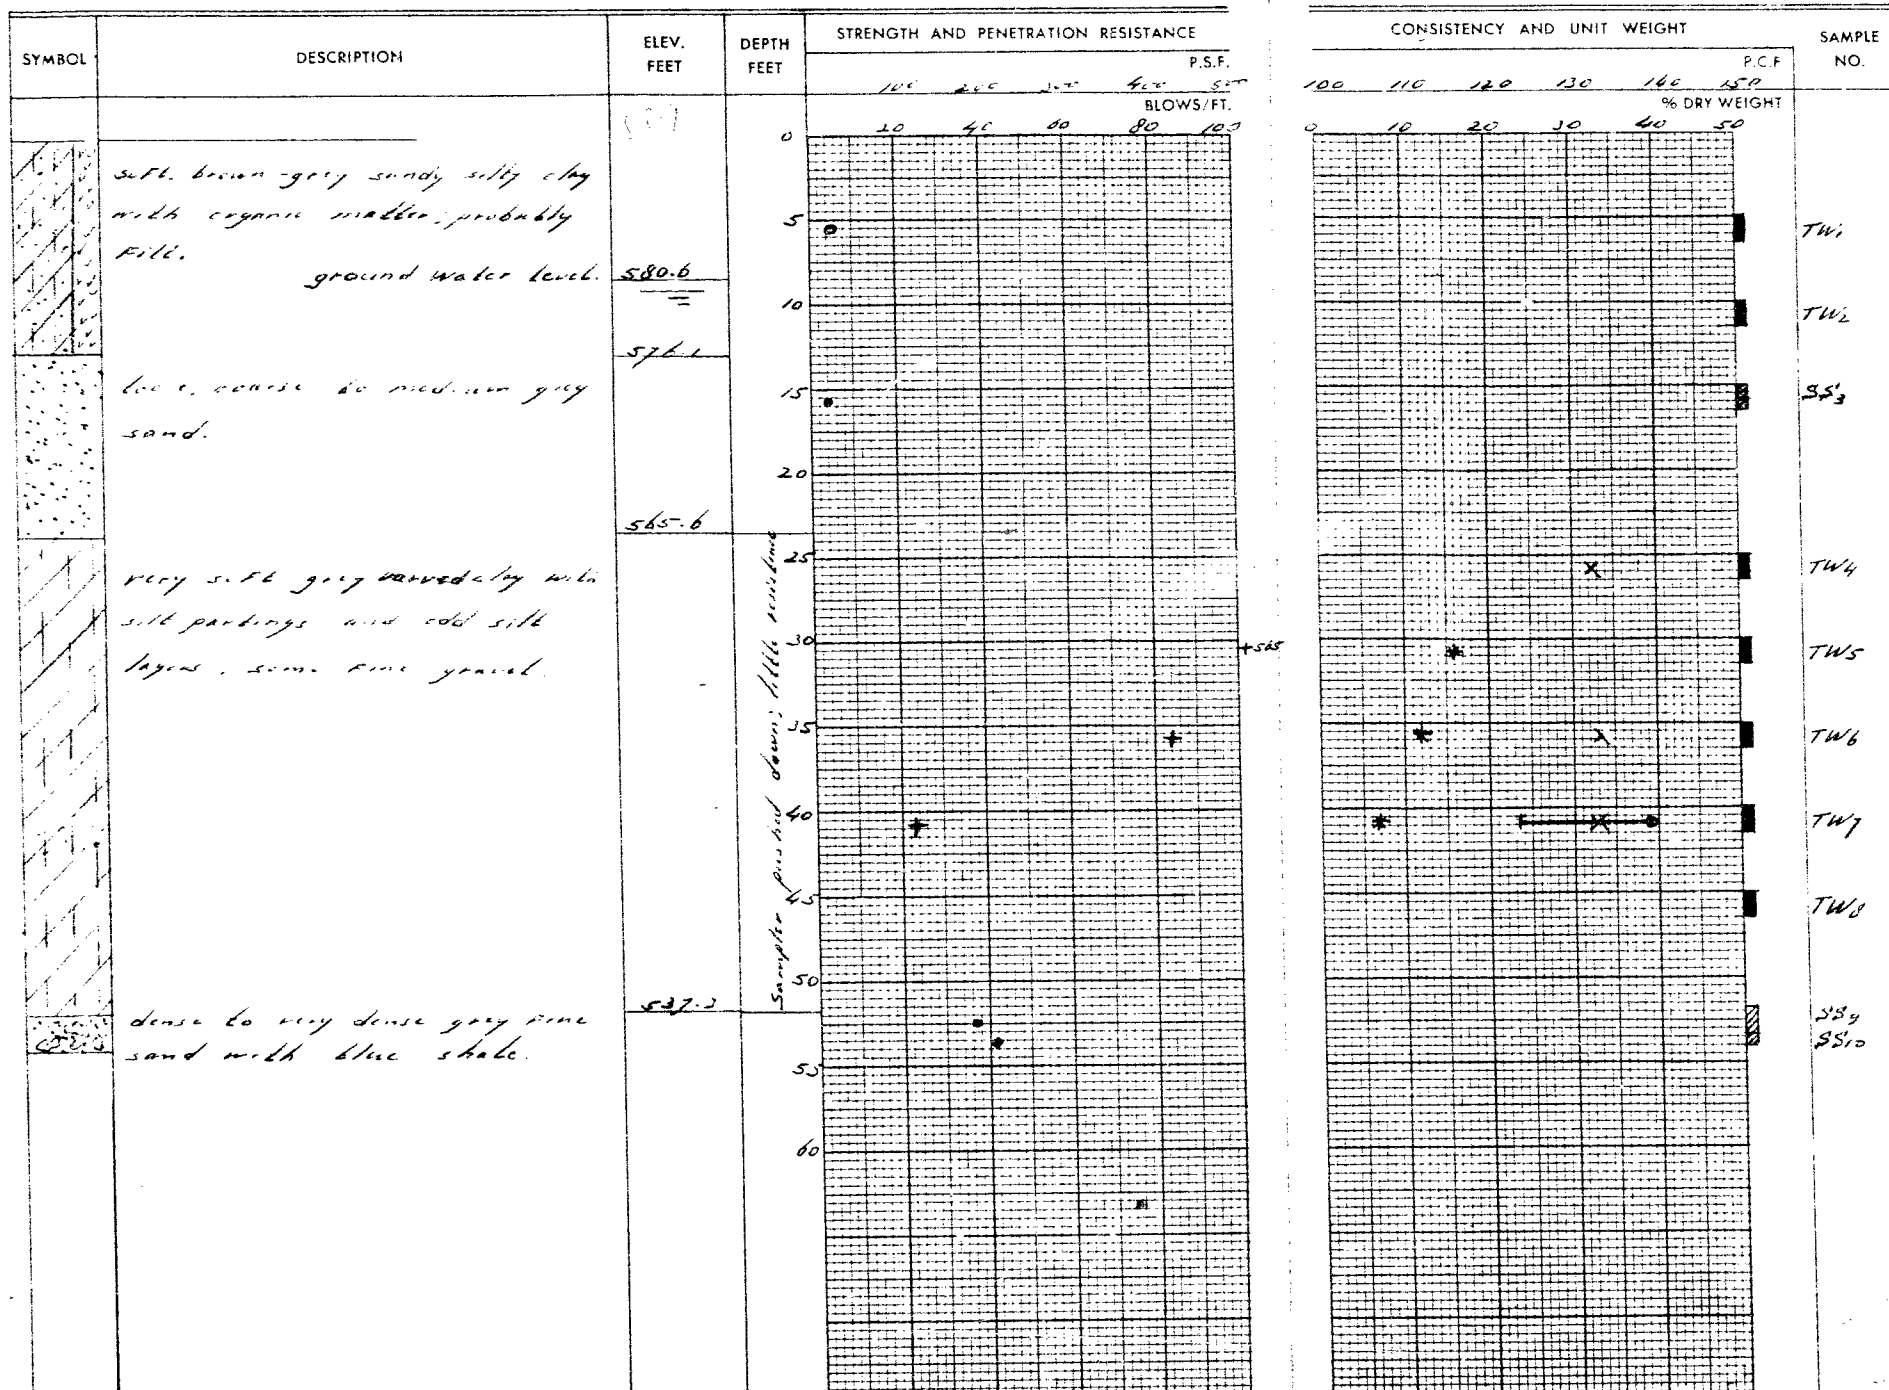 SYMBOL
DESCRIPTION
ELEV. FEET
DEPTH FEET
STRENGTH AND PENETRATION RESISTANCE
P.S.F.
100 200 300 400 500
BLOWS/FT.
20 40 60 80 100
CONSISTENCY AND UNIT WEIGHT
P.C.F
100 110 120 130 140 150
% DRY WEIGHT
0 10 20 30 40 50
SAMPLE NO.
soft. brown-grey sandy silty clay
with organic matter, probably
Fill.
ground water level. 580.6
576.1
coarse to medium grey
sand.
565.6
very soft grey varved clay with
silt partings and odd silt
layers, some fine gravel.
537.3
dense to very dense grey fine
sand with blue shale.
Sampler pushed down, little resistance
0
5
10
15
20
25
30
35
40
45
50
55
60
+565
TW1
TW2
SS3
TW4
TW5
TW6
TW7
TW8
SS9
SS10